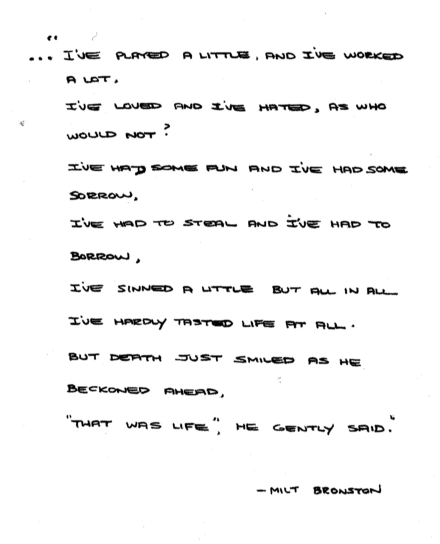 "
... I'VE PLAYED A LITTLE, AND I'VE WORKED
A LOT,
I'VE LOVED AND I'VE HATED, AS WHO
WOULD NOT?
I'VE HAD SOME FUN AND I'VE HAD SOME
SORROW,
I'VE HAD TO STEAL AND I'VE HAD TO
BORROW,
I'VE SINNED A LITTLE BUT ALL IN ALL
I'VE HARDLY TASTED LIFE AT ALL.
BUT DEATH JUST SMILED AS HE
BECKONED AHEAD,
"THAT WAS LIFE", HE GENTLY SAID."
- MILT BRONSTON